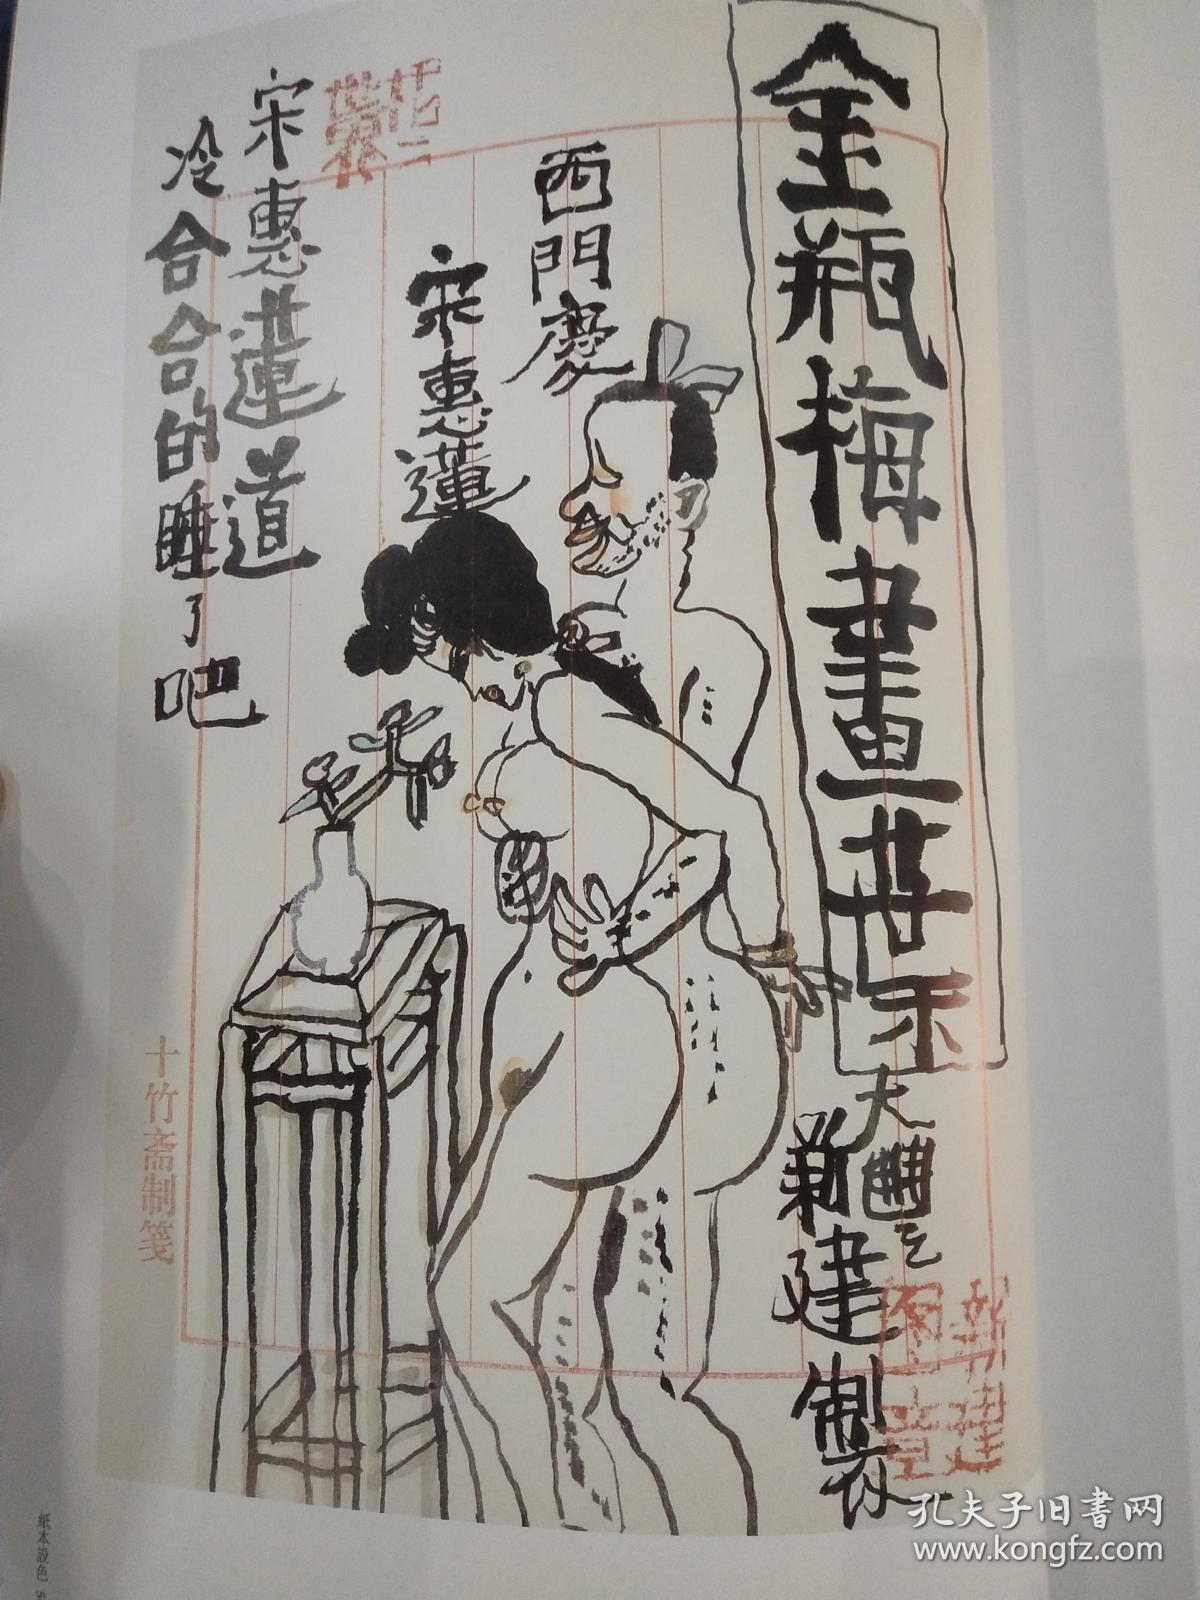 金瓶梅畫廿禾
大豐之
新建製
西門慶
宋惠蓮
宋惠蓮道
冷合合的睡了吧
十竹斋制笺
紙本設色
孔夫子旧书网
www.kongfz.com